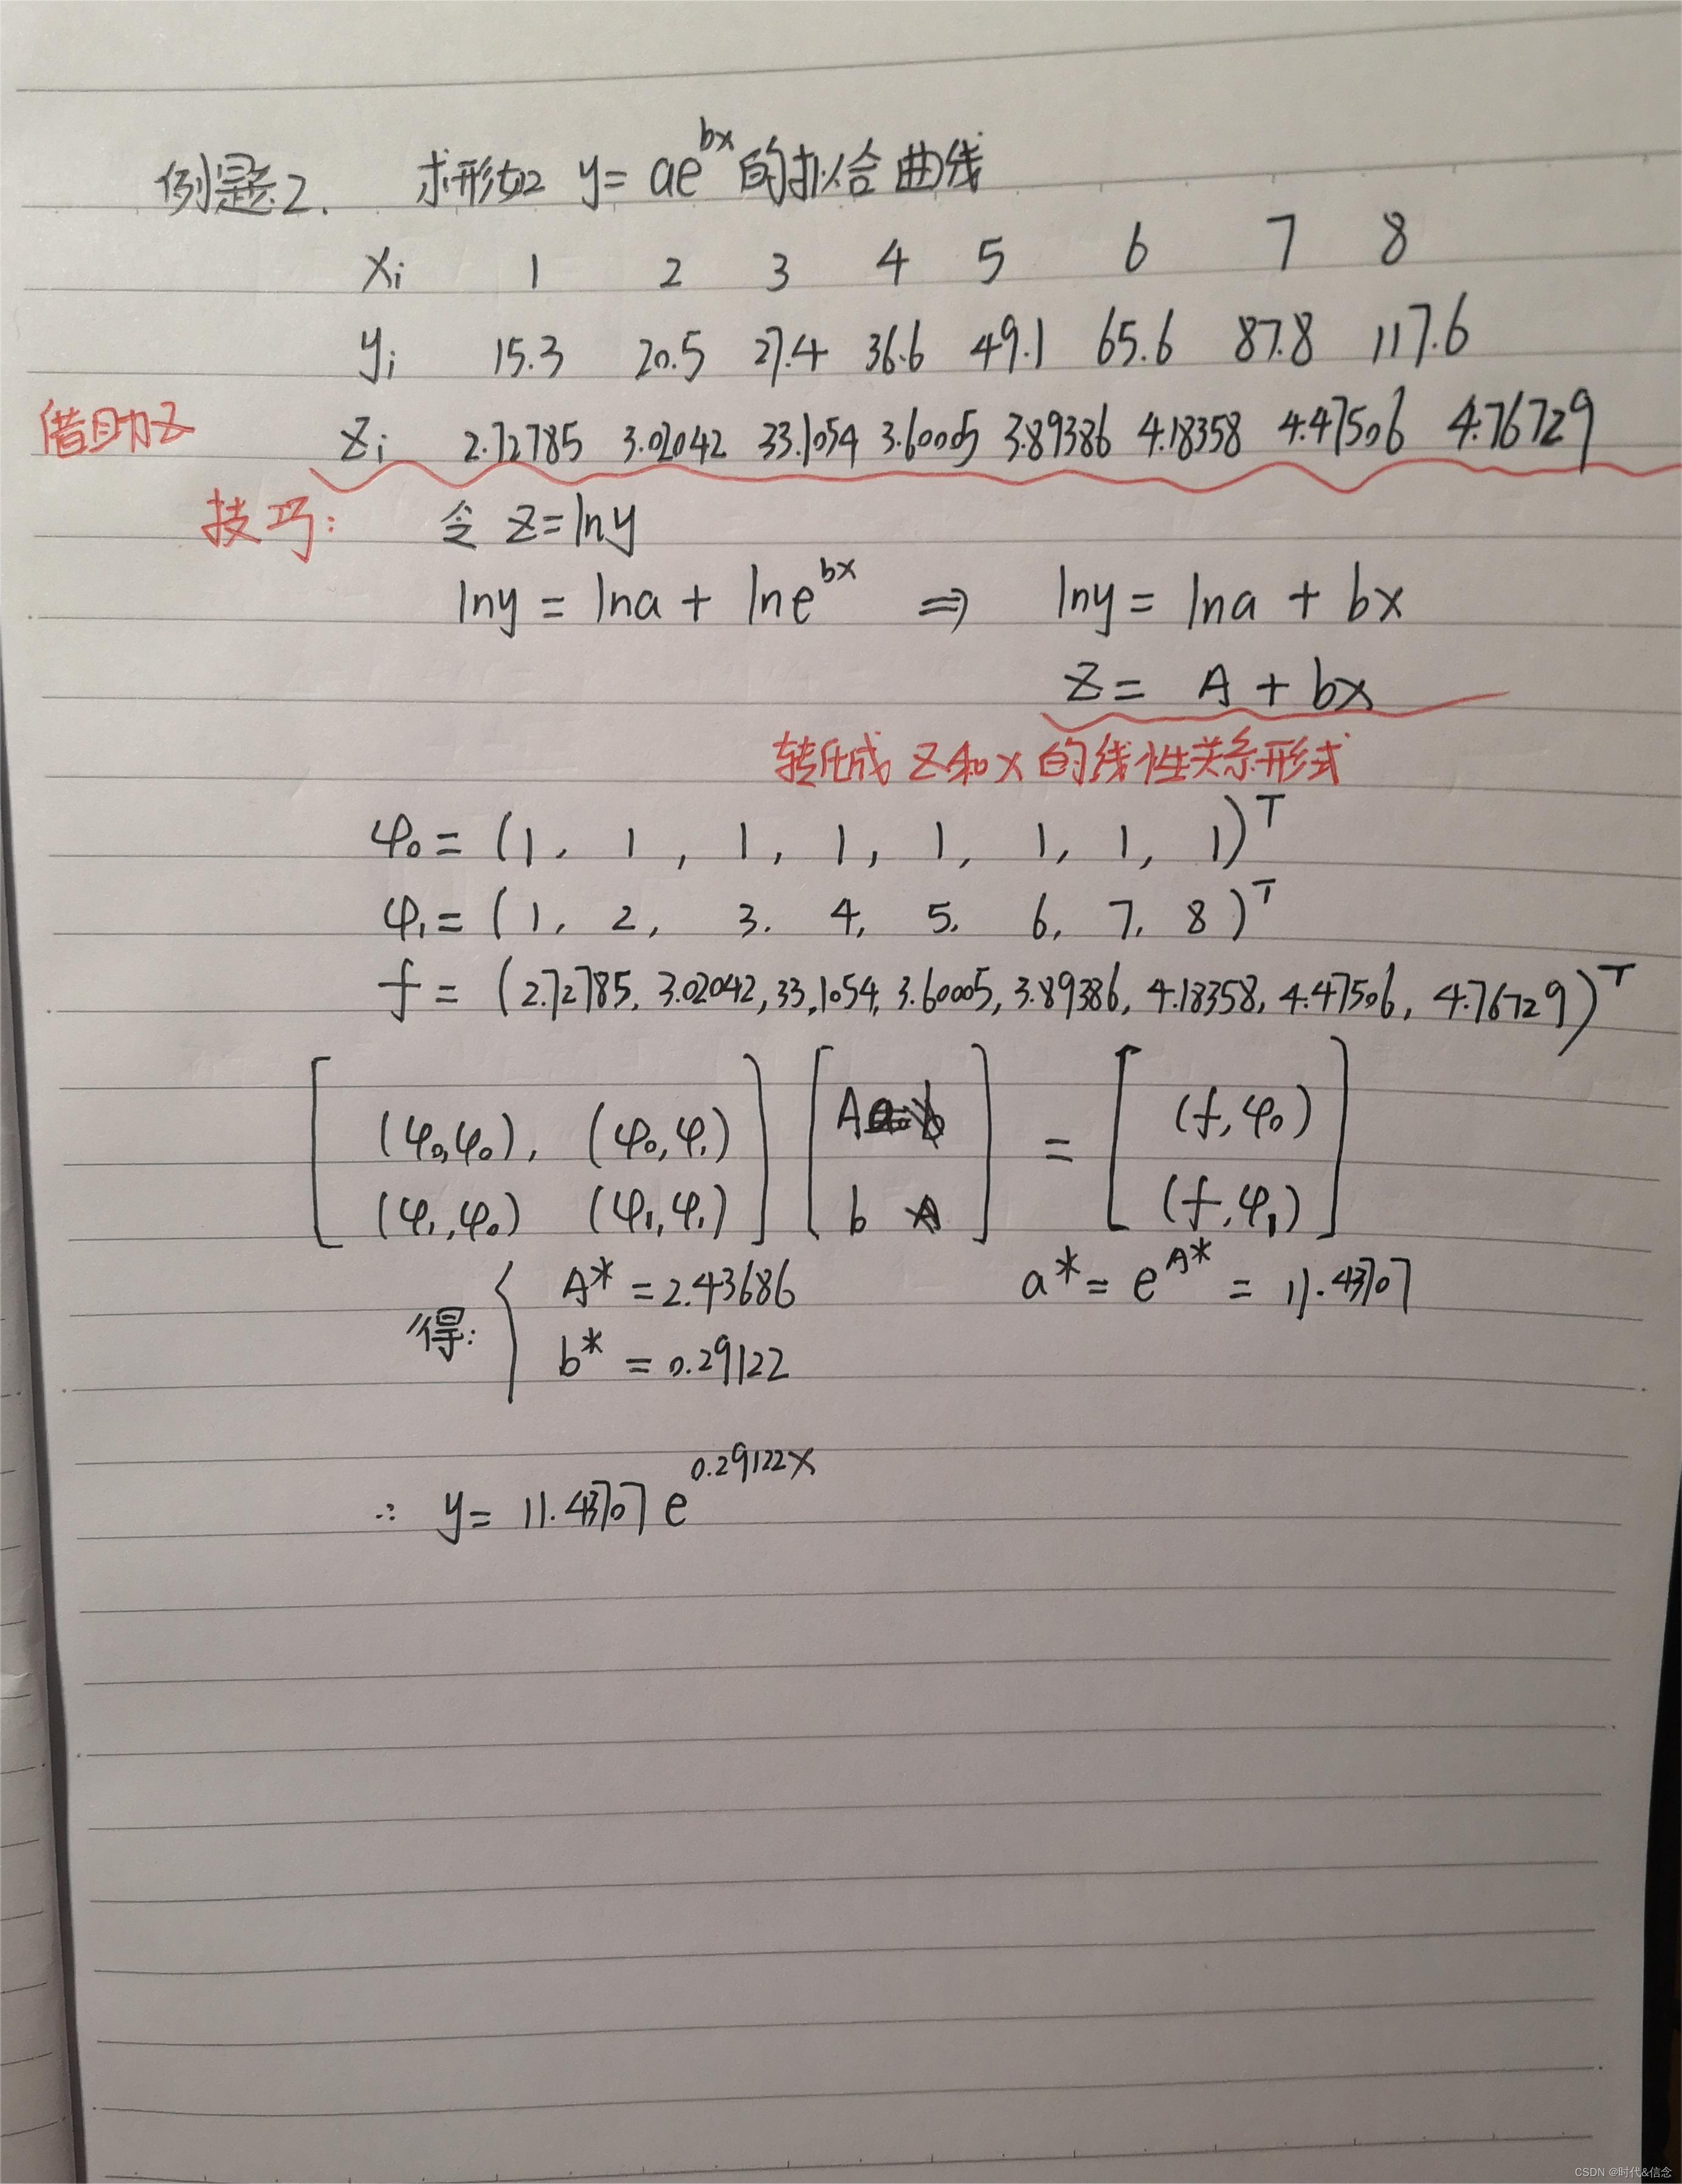 例题2. 求形如 y= ae^bx 的拟合曲线
xi 1 2 3 4 5 6 7 8
yi 15.3 20.5 27.4 36.6 49.1 65.6 87.8 117.6
借助z zi 2.72785 3.02042 33.1054 3.60005 3.89386 4.18358 4.47506 4.76729
技巧: 令 z=lny
lny = lna + lne^bx ⇒ lny = lna + bx
z = A + bx
转化成 z和x 的线性关系形式
φ₀ = (1, 1, 1, 1, 1, 1, 1, 1)^T
φ₁ = (1, 2, 3, 4, 5, 6, 7, 8)^T
f = (2.72785, 3.02042, 33.1054, 3.60005, 3.89386, 4.18358, 4.47506, 4.76729)^T
[(φ₀,φ₀), (φ₀,φ₁)] [A] = [(f,φ₀)]
[(φ₁,φ₀) (φ₁,φ₁)] [b] [(f,φ₁)]
得: { A* = 2.43686 a* = e^A* = 11.43707
b* = 0.29122
∴ y= 11.43707 e^0.29122x
CSDN @时代&信念